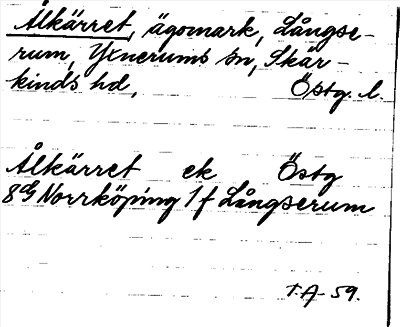 Ålkärret, ägomark, Långse-
rum, Yxnerums sn, Skär-
kinds hd, Östg. l.
Ålkärret ek Östg
8G Norrköping 1f Långserum
T.A. 59.